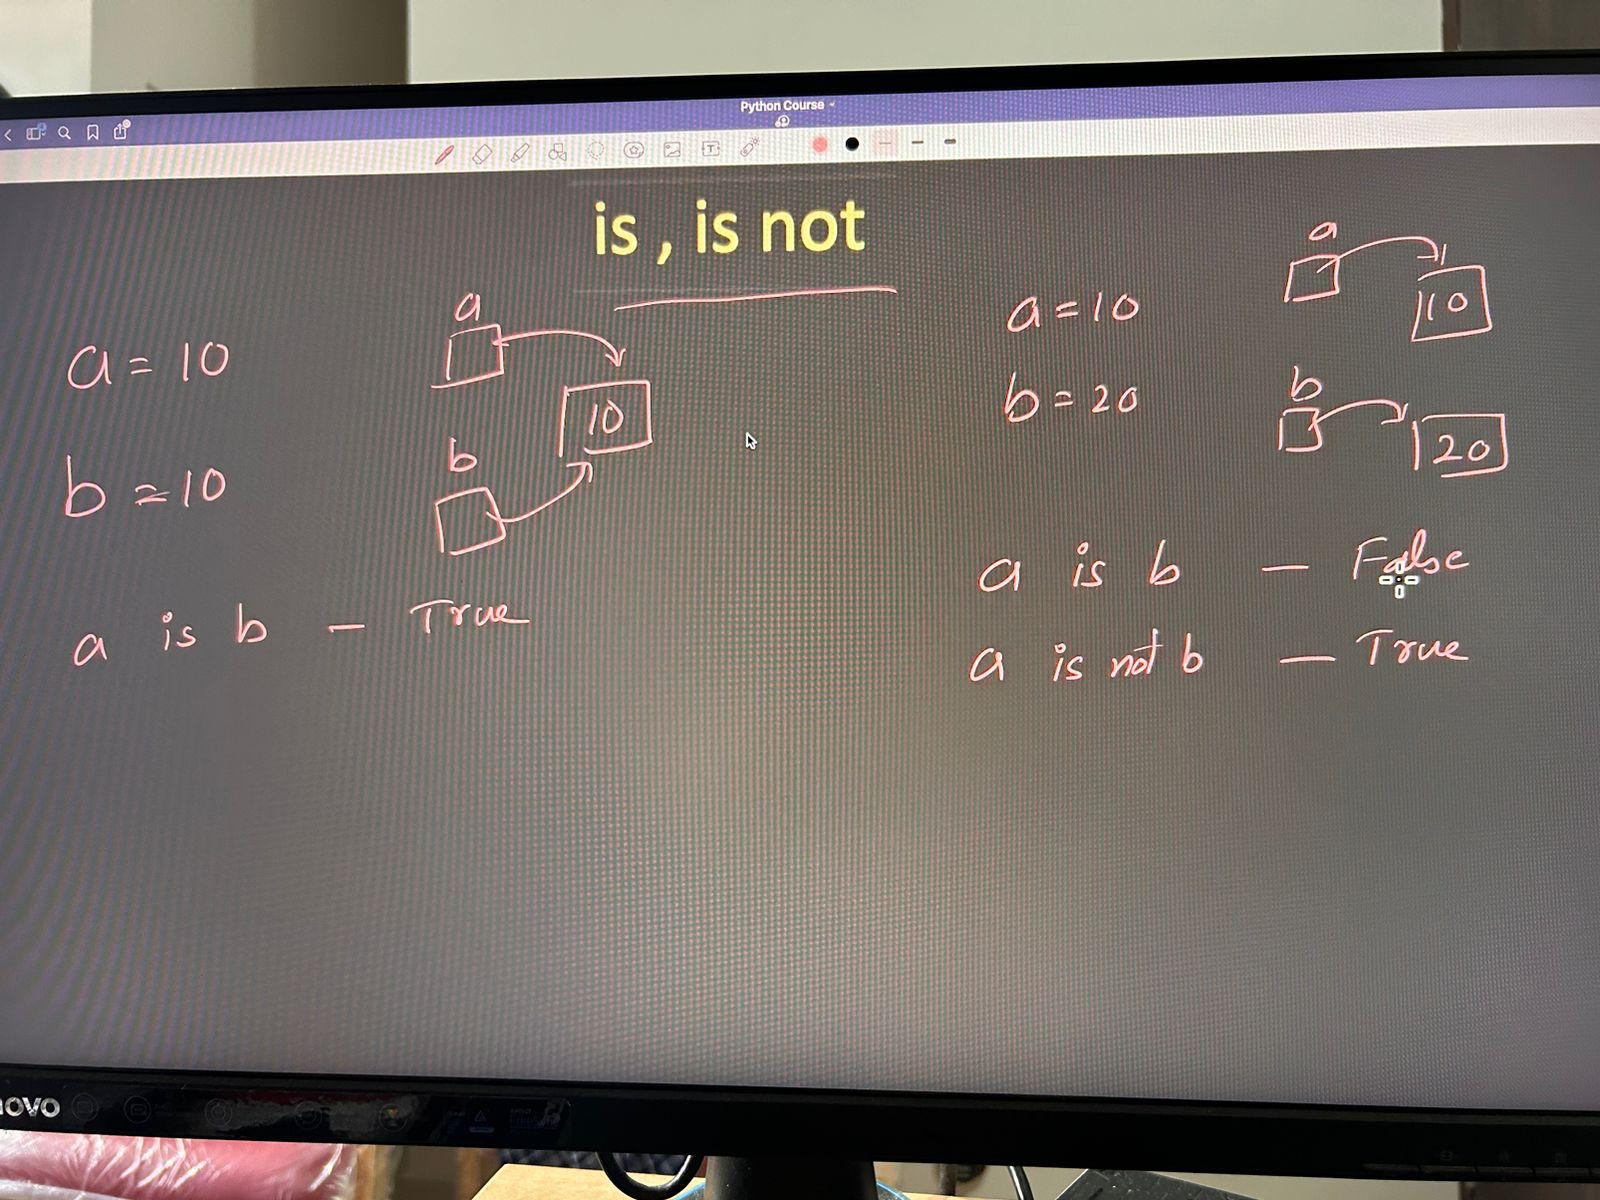 Python Course
is , is not
a = 10
b = 10
a
10
b
a is b – True
a = 10
b = 20
a
10
b
20
a is b – False
a is not b – True
novo